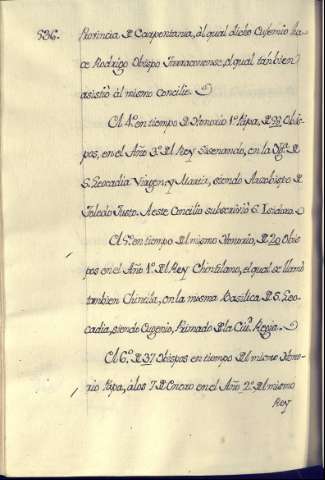 536.
Provincia de Carpentania, al qual dicho Eufemio ha-
ce Rodrigo Obispo Tarraconense, el qual tambien
asistiò al mismo Concilio.
El 4º en tiempo de Honorio 1º Papa, de 99 Obis-
pos, en el Año 3º del Rey Sisenando, en la Yglª de
S. Leocadia Virgen, y Martir, siendo Arzobispo de
Toledo Justo. A este Concilio subscribiò S. Isidoro.
El 5º en tiempo del mismo Honorio, de 20 Obis-
pos en el Año 1º del Rey Chintilano, el qual se llamò
tambien Chintila, en la misma Basilica de S. Leo-
cadia, siendo Eugenio, Primado de la Ciuᵈ Regia.
El 6º de 37 Obispos en tiempo del mismo Hono-
rio Papa, à los 7 de Enero en el Año 2º del mismo
Rey